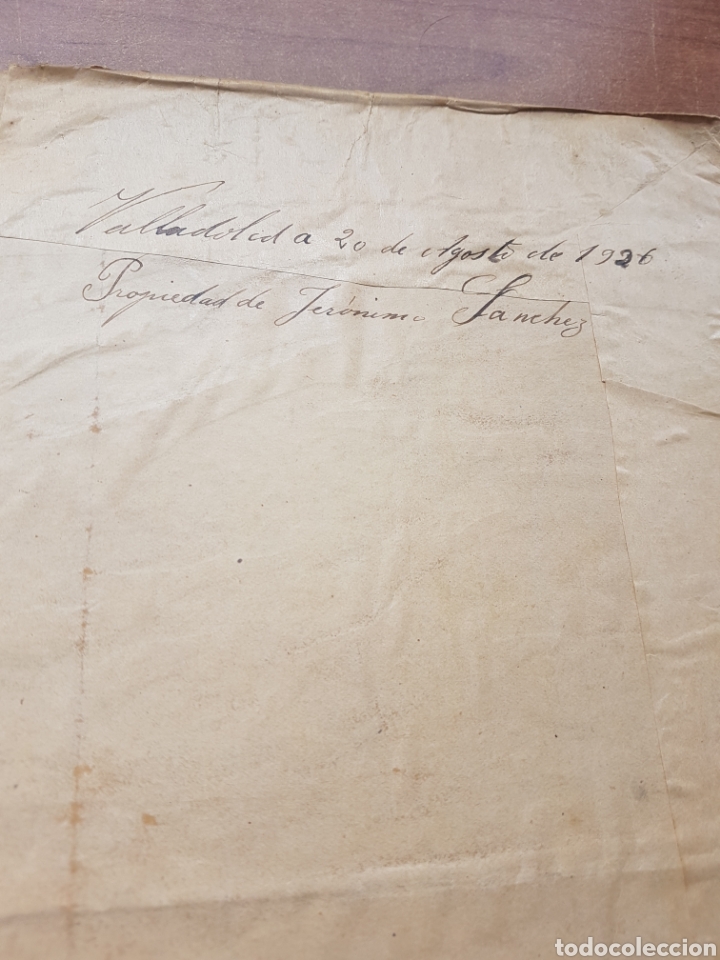 Valladolid a 20 de Agosto de 1926
Propiedad de Jerónimo Sanchez
todocoleccion